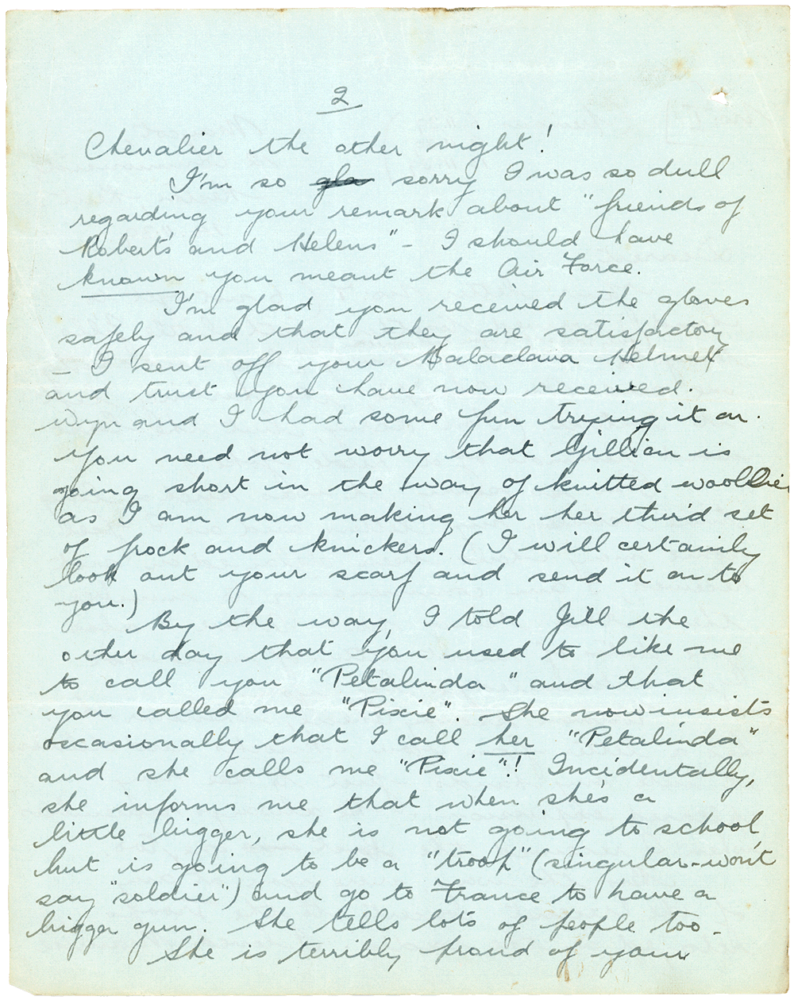 2
Chevalier the other night!
I'm so gla sorry I was so dull
regarding your remark about "friends of
Robert's and Helens" - I should have
known you meant the Air Force.
I'm glad you received the gloves
safely and that they are satisfactory
- I sent off your Balaclava Helmet
and trust you have now received.
Wyn and I had some fun trying it on.
You need not worry that Gillian is
going short in the way of knitted woollies
as I am now making her her third set
of frock and knickers. (I will certainly
look out your scarf and send it on to
you.)
By the way, I told Jill the
other day that you used to like me
to call you "Petalinda" and that
you called me "Pixie". She now insists
occasionally that I call her "Petalinda"
and she calls me "Pixie"! Incidentally,
she informs me that when she's a
little bigger, she is not going to school
but is going to be a "troop" (singular - won't
say "soldier") and go to France to have a
bigger gun. She tells lots of people too.
She is terribly proud of your